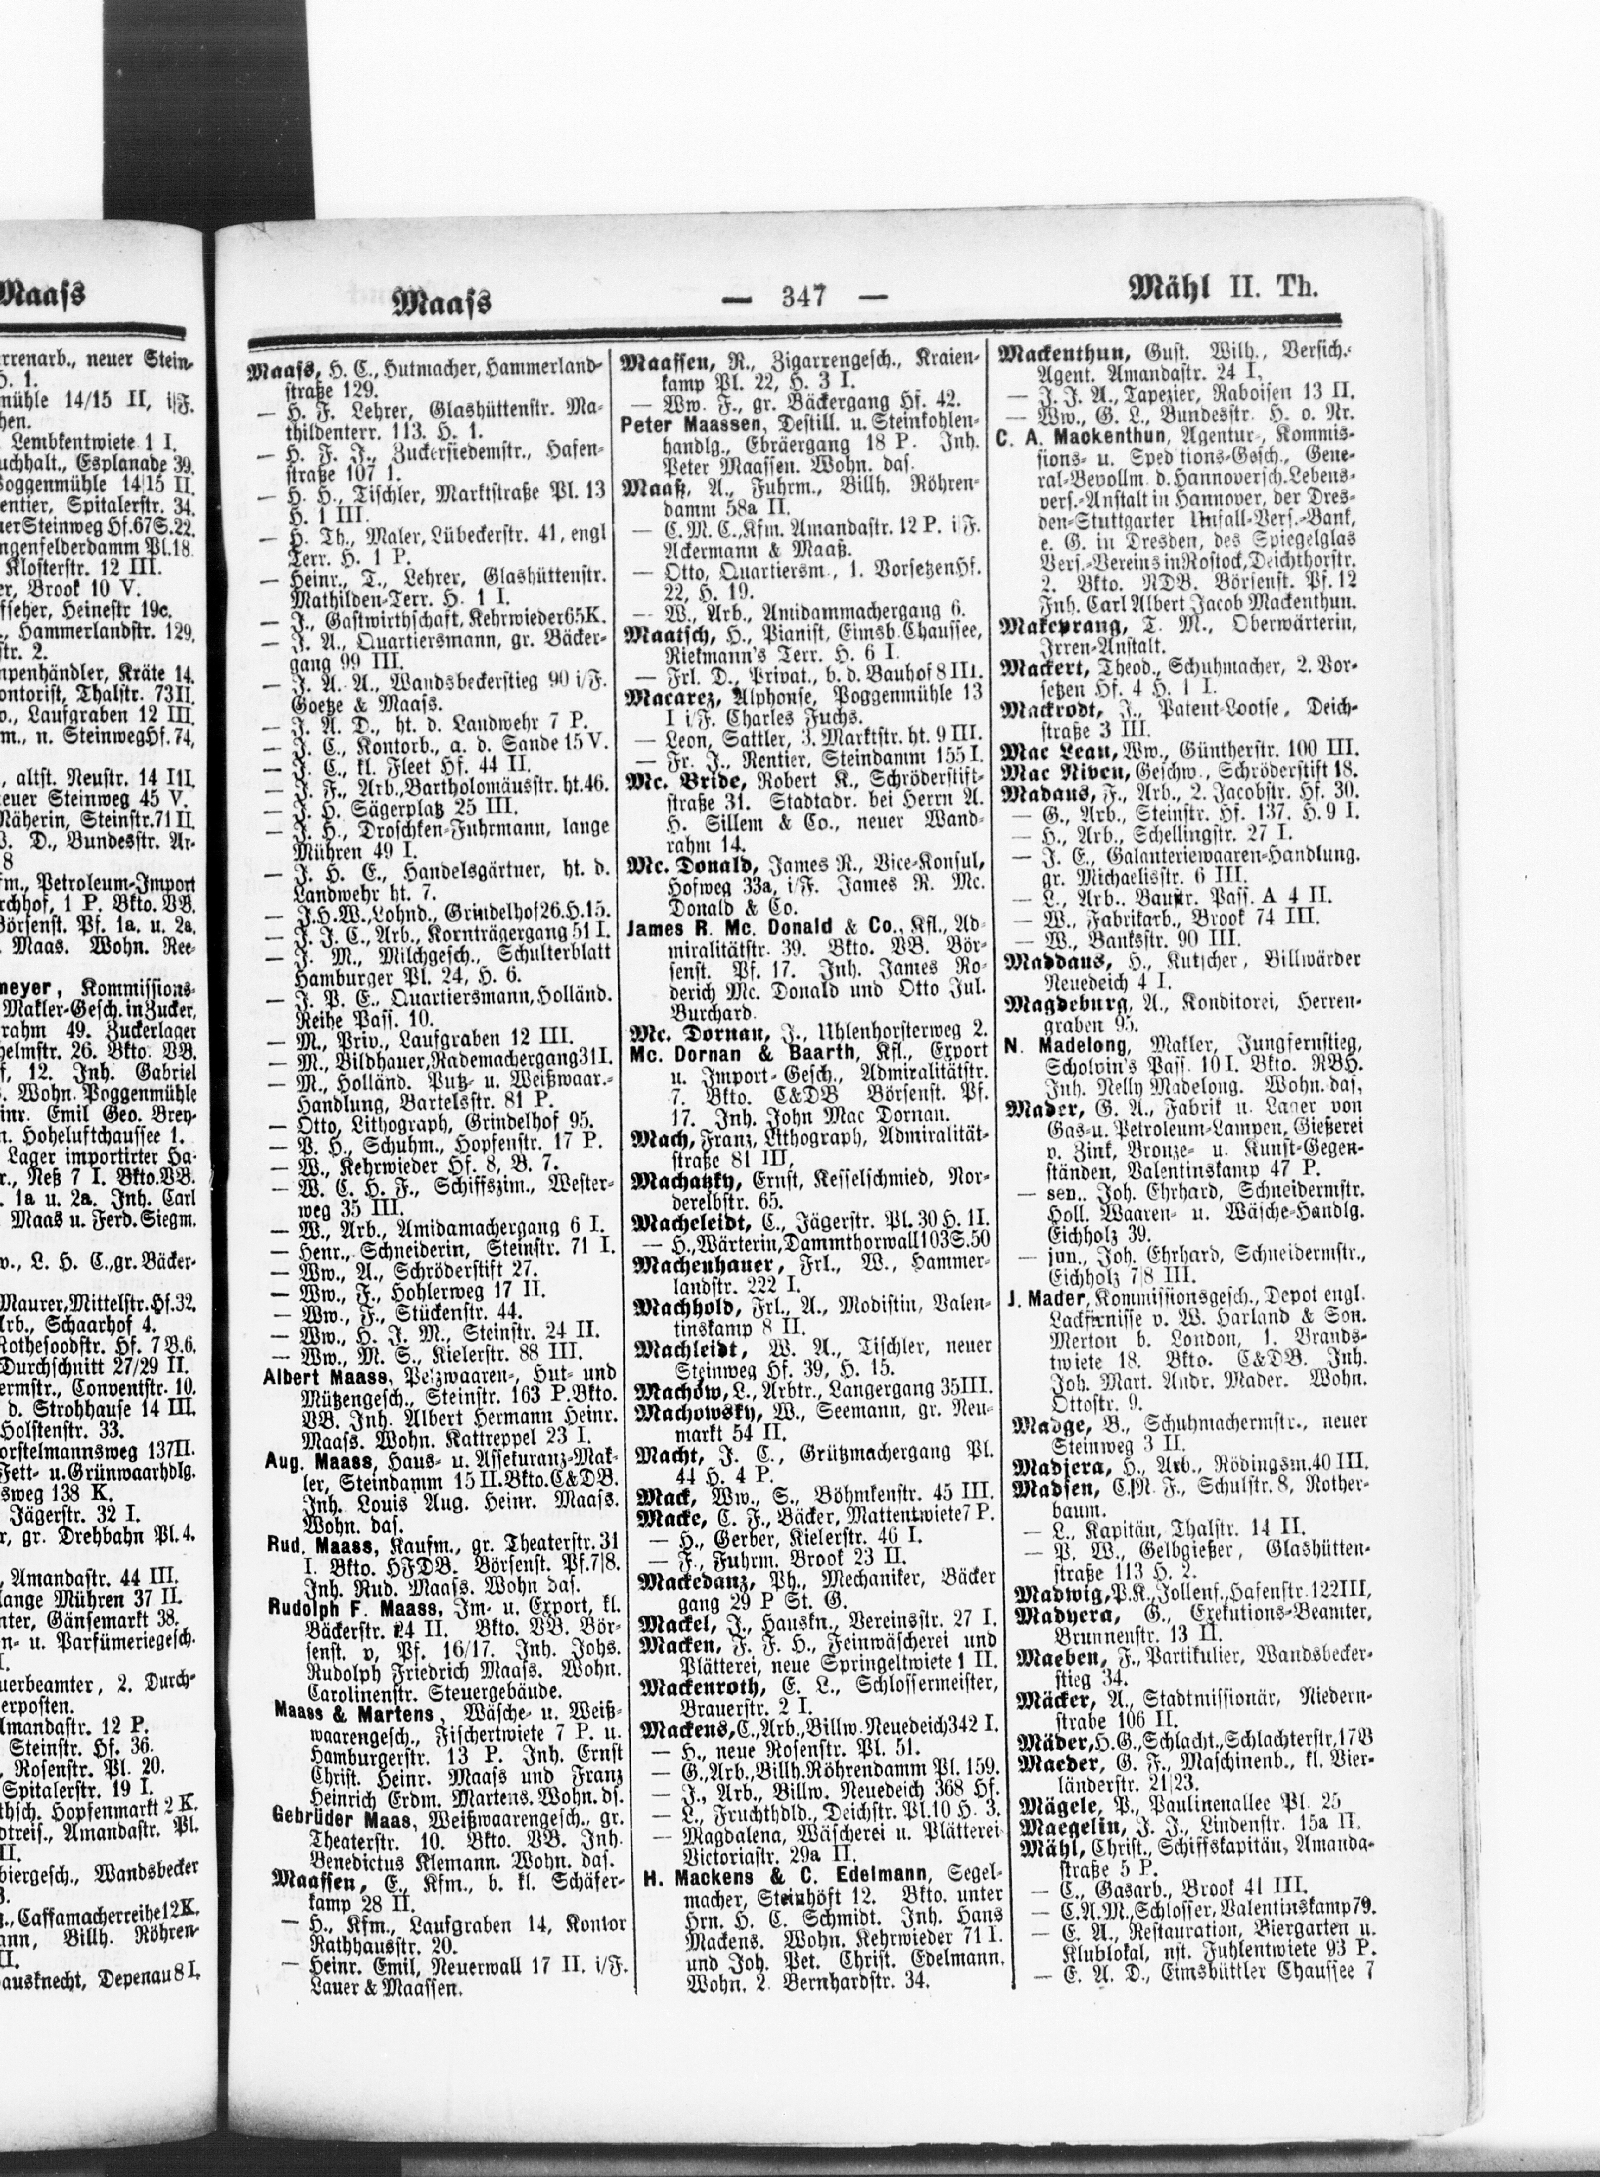 Maass
rrenarb., neuer Stein-
mühle 14/15 II, i/F.
Lembkentwiete 1 I.
uchhalt., Esplanade 39.
Poggenmühle 14/15 II.
entier, Spitalerstr. 34.
uer Steinweg Hf. 67 S. 22.
ngenfelderdamm Pl. 18.
Klosterstr. 12 III.
er, Brook 10 V.
fseher, Heinestr 19c.
., Hammerlandstr. 129,
str. 2.
npenhändler, Kräte 14.
ontorist, Thalstr. 73 II.
o., Laufgraben 12 III.
m., n. Steinweg Hf. 74,
, altst. Neustr. 14 III.
euer Steinweg 45 V.
Näherin, Steinstr. 71 II.
W. D., Bundesstr. Ar-
8
fm., Petroleum-Import
rchhof, 1 P. Bkto. VB.
Börsenst. Pf. 1a. u. 2a.
Maas. Wohn. Ree-
meyer, Kommissions-
Makler-Gesch. in Zucker,
rahm 49. Zuckerlager
helmstr. 26. Bkto. VB.
f, 12. Inh. Gabriel
. Wohn. Poggenmühle
inr. Emil Geo. Brey-
n. Hoheluftchaussee 1.
Lager importirter Ha-
r., Neß 7 I. Bkto. VB.
. 1a u. 2a. Inh. Carl
Maas u. Ferd. Siegm.
w., L. H. C., gr. Bäcker-
Maurer, Mittelstr. Hf. 32.
Arb., Schaarhof 4.
Rothesoodstr. Hf. 7 B. 6.
Durchschnitt 27/29 II.
ermstr., Conventstr. 10.
d. Strohhause 14 III.
Holstenstr. 33.
orstelmannsweg 137 II.
Fett- u. Grünwaarhdlg.
sweg 138 K.
Jägerstr. 32 I.
r, gr. Drehbahn Pl. 4.
, Amandastr. 44 III.
lange Mühren 37 II.
nter, Gänsemarkt 38.
n- u. Parfümeriegesch.
uerbeamter, 2. Durch-
erposten.
Amandastr. 12 P.
Steinstr. Hf. 36.
, Rosenstr. Pl. 20.
Spitalerstr. 19 I.
thsch. Hopfenmarkt 2 K.
dtreis., Amandastr. Pl.
II.
biergesch., Wandsbecker
., Caffamacherreihe 12 K.
ann, Billh. Röhren-
II.
ausknecht, Depenau 8 I.
Maass — 347 — Mähl II. Th.
Maass, H. C., Hutmacher, Hammerland-
straße 129.
— H. F. Lehrer, Glashüttenstr. Ma-
thildenterr. 113. H. 1.
— H. F. J., Zuckersiedemstr., Hafen-
straße 107 1.
— H. H., Tischler, Marktstraße Pl. 13
H. 1 III.
— H. Th., Maler, Lübeckerstr. 41, engl
Terr. H. 1 P.
— Heinr., T., Lehrer, Glashüttenstr.
Mathilden-Terr. H. 1 I.
— J., Gastwirthschaft, Kehrwieder 65 K.
— J. A., Quartiersmann, gr. Bäcker-
gang 99 III.
— J. A. A., Wandsbeckerstieg 90 i/F.
Goetze & Maass.
— J. A. D., ht. d. Landwehr 7 P.
— J. C., Kontorb., a. d. Sande 15 V.
— J. C., kl. Fleet Hf. 44 II.
— J. F., Arb., Bartholomäusstr. ht. 46.
— J. H. Sägerplatz 25 III.
— J. H., Droschken-Fuhrmann, lange
Mühren 49 I.
— J. H. E., Handelsgärtner, ht. d.
Landwehr ht. 7.
— J. H. W., Lohnd., Grindelhof 26. H. 15.
— J. J. C., Arb., Kornträgergang 51 I.
— J. M., Milchgesch., Schulterblatt
Hamburger Pl. 24, H. 6.
— J. P. E., Quartiersmann, Holländ.
Reihe Pass. 10.
— M., Priv., Laufgraben 12 III.
— M., Bildhauer, Rademachergang 31 I.
— M., Holländ. Putz- u. Weißwaar.-
Handlung, Bartelsstr. 81 P.
— Otto, Lithograph, Grindelhof 95.
— P. H., Schuhm., Hopfenstr. 17 P.
— W., Kehrwieder Hf. 8, B. 7.
— W. C. H. F., Schiffszim., Wester-
weg 35 III.
— W., Arb., Amidamachergang 6 I.
— Henr., Schneiderin, Steinstr. 71 I.
— Ww., A., Schröderstift 27.
— Ww., F., Hohlerweg 17 II.
— Ww., F., Stückenstr. 44.
— Ww., H. J. M., Steinstr. 24 II.
— Ww., M. S., Kielerstr. 88 III.
Albert Maass, Pelzwaaren-, Hut- und
Mützengesch., Steinstr. 163 P. Bkto.
VB. Inh. Albert Hermann Heinr.
Maass. Wohn. Kattreppel 23 I.
Aug. Maass, Haus- u. Assekuranz-Mak-
ler, Steindamm 15 II. Bkto. C&DB.
Inh. Louis Aug. Heinr. Maass.
Wohn. das.
Rud. Maass, Kaufm., gr. Theaterstr. 31
I. Bkto. HFDB. Börsenst. Pf. 7/8.
Inh. Rud. Maass. Wohn das.
Rudolph F. Maass, Im- u. Export, kl.
Bäckerstr. 24 II. Bkto. VB. Bör-
senst. v. Pf. 16/17. Inh. Johs.
Rudolph Friedrich Maass. Wohn.
Carolinenstr. Steuergebäude.
Maass & Martens, Wäsche- u. Weiß-
waarengesch., Fischertwiete 7 P. u.
Hamburgerstr. 13 P. Inh. Ernst
Christ. Heinr. Maass und Franz
Heinrich Erdm. Martens. Wohn. ds.
Gebrüder Maas, Weißwaarengesch., gr.
Theaterstr. 10. Bkto. VB. Inh.
Benedictus Klemann. Wohn. das.
Maassen, E., Kfm., b. kl. Schäfer-
kamp 28 II.
— H., Kfm., Laufgraben 14, Kontor
Rathhausstr. 20.
— Heinr. Emil, Neuerwall 17 II. i/F.
Lauer & Maassen.
Maassen, R., Zigarrengesch., Kraien-
kamp Pl. 22, H. 3 I.
— Ww. F., gr. Bäckergang Hf. 42.
Peter Maassen, Destill. u. Steinkohlen-
handlg., Ebräergang 18 P. Inh.
Peter Maassen. Wohn. das.
Maaß, A., Fuhrm., Billh. Röhren-
damm 58a II.
— C. M. C., Kfm. Amandastr. 12 P. i/F.
Ackermann & Maaß.
— Otto, Quartiersm., 1. Vorsetzen Hf.
22, H. 19.
— W., Arb., Amidammachergang 6.
Maatsch, H., Pianist, Eimsb. Chaussee,
Riekmann's Terr. H. 6 I.
— Frl. D., Privat., b. d. Bauhof 8 III.
Macarez, Alphonse, Poggenmühle 13
I i/F. Charles Fuchs.
— Leon, Sattler, 3. Marktstr. ht. 9 III.
— Fr. J., Rentier, Steindamm 155 I.
Mc. Bride, Robert K., Schröderstift-
straße 31. Stadtadr. bei Herrn A.
H. Sillem & Co., neuer Wand-
rahm 14.
Mc. Donald, James R., Vice-Konsul,
Hofweg 33a, i/F. James R. Mc.
Donald & Co.
James R. Mc. Donald & Co., Kfl., Ad-
miralitätstr. 39. Bkto. VB. Bör-
senst. Pf. 17. Inh. James Ro-
derich Mc. Donald und Otto Jul.
Burchard.
Mc. Dornan, J., Uhlenhorsterweg 2.
Mc. Dornan & Baarth, Kfl., Export
u. Import-Gesch., Admiralitätstr.
7. Bkto. C&DB Börsenst. Pf.
17. Inh. John Mac Dornan.
Mach, Franz, Lithograph, Admiralität-
straße 81 III.
Machatzky, Ernst, Kesselschmied, Nor-
derelbstr. 65.
Macheleidt, C., Jägerstr. Pl. 30 H. 1 I.
— H., Wärterin, Dammthorwall 103 S. 50
Machenhauer, Frl., W., Hammer-
landstr. 222 I.
Machhold, Frl., A., Modistin, Valen-
tinskamp 8 II.
Machleidt, W. A., Tischler, neuer
Steinweg Hf. 39, H. 15.
Machow, L., Arbtr., Langergang 35 III.
Machowsky, W., Seemann, gr. Neu-
markt 54 II.
Macht, J. C., Grützmachergang Pl.
44 H. 4 P.
Mack, Ww., S., Böhmkenstr. 45 III.
Macke, C. F., Bäcker, Mattentwiete 7 P.
— H., Gerber, Kielerstr. 46 I.
— F., Fuhrm. Brook 23 II.
Mackedanz, Ph., Mechaniker, Bäcker
gang 29 P St. G.
Mackel, J., Hauskn., Vereinsstr. 27 I.
Macken, F. F. H., Feinwäscherei und
Plätterei, neue Springeltwiete 1 II.
Mackenroth, E. L., Schlossermeister,
Brauerstr. 2 I.
Mackens, C., Arb., Billw. Neuedeich 342 I.
— H., neue Rosenstr. Pl. 51.
— G., Arb., Billh. Röhrendamm Pl. 159.
— J., Arb., Billw. Neuedeich 368 Hf.
— L., Fruchthdld., Deichstr. Pl. 10 H. 3.
— Magdalena, Wäscherei u. Plätterei
Victoriastr. 29a II.
H. Mackens & C. Edelmann, Segel-
macher, Steinhöft 12. Bkto. unter
Hrn. H. C. Schmidt. Inh. Hans
Mackens. Wohn. Kehrwieder 71 I.
und Joh. Pet. Christ. Edelmann.
Wohn. 2. Bernhardstr. 34.
Mackenthun, Gust. Wilh., Versich.-
Agent. Amandastr. 24 I.
— J. J. A., Tapezier, Raboisen 13 II.
— Ww., G. L., Bundesstr. H. o. Nr.
C. A. Mackenthun, Agentur-, Kommis-
sions- u. Speditions-Gesch., Gene-
ral-Bevollm. d. Hannoversch. Lebens-
vers.-Anstalt in Hannover, der Dres-
den-Stuttgarter Unfall-Vers.-Bank,
e. G. in Dresden, des Spiegelglas
Vers.-Vereins in Rostock, Deichthorstr.
2. Bkto. NDB. Börsenst. Pf. 12
Inh. Carl Albert Jacob Mackenthun.
Makeprang, T. M., Oberwärterin,
Irren-Anstalt.
Mackert, Theod., Schuhmacher, 2. Vor-
setzen Hf. 4 H. 1 I.
Mackrodt, J., Patent-Lootse, Deich-
straße 3 III.
Mac Lean, Ww., Güntherstr. 100 III.
Mac Niven, Geschw., Schröderstift 18.
Madaus, F., Arb., 2. Jacobstr. Hf. 30.
— G., Arb., Steinstr. Hf. 137. H. 9 I.
— H., Arb., Schellingstr. 27 I.
— J. E., Galanteriewaaren-Handlung.
gr. Michaelisstr. 6 III.
— L., Arb.. Baustr. Pass. A 4 II.
— W., Fabrikarb., Brook 74 III.
— W., Banksstr. 90 III.
Maddaus, H., Kutscher, Billwärder
Neuedeich 4 I.
Magdeburg, A., Konditorei, Herren-
graben 95.
N. Madelong, Makler, Jungfernstieg,
Scholvin's Pass. 10 I. Bkto. RBH.
Inh. Nelly Madelong. Wohn. das.
Mader, G. A., Fabrik u. Lager von
Gas- u. Petroleum-Lampen, Gießerei
v. Zink, Bronze- u. Kunst-Gegen-
ständen, Valentinskamp 47 P.
— sen., Joh. Ehrhard, Schneidermstr.
Holl. Waaren- u. Wäsche-Handlg.
Eichholz 39.
— jun., Joh. Ehrhard, Schneidermstr.,
Eichholz 7/8 III.
J. Mader, Kommissionsgesch., Depot engl.
Lackfirnisse v. W. Harland & Son.
Merton b. London, 1. Brands-
twiete 18. Bkto. C&DB. Inh.
Joh. Mart. Andr. Mader. Wohn.
Ottostr. 9.
Madge, B., Schuhmachermstr., neuer
Steinweg 3 II.
Madjera, H., Arb., Rödingsm. 40 III.
Madsen, C. N. F., Schulstr. 8, Rother-
baum.
— L., Kapitän, Thalstr. 14 II.
— P. W., Gelbgießer, Glashütten-
straße 113 H. 2.
Madwig, P. K., Jollenf., Hafenstr. 122 III,
Madyera, G., Exekutions-Beamter,
Brunnenstr. 13 II.
Maeben, F., Partikulier, Wandsbecker-
stieg 34.
Mäcker, A., Stadtmissionär, Niedern-
strabe 106 II.
Mäder, H. G., Schlacht., Schlachterstr. 17 B
Maeder, G. F., Maschinenb., kl. Vier-
länderstr. 21/23.
Mägele, P., Paulinenallee Pl. 25
Maegelin, J. J., Lindenstr. 15a II.
Mähl, Christ., Schiffskapitän, Amanda-
straße 5 P.
— C., Gasarb., Brook 41 III.
— C. A. M., Schlosser, Valentinskamp 79.
— E. A., Restauration, Biergarten u.
Klublokal, nst. Fuhlentwiete 93 P.
— E. A. D., Eimsbüttler Chaussee 7